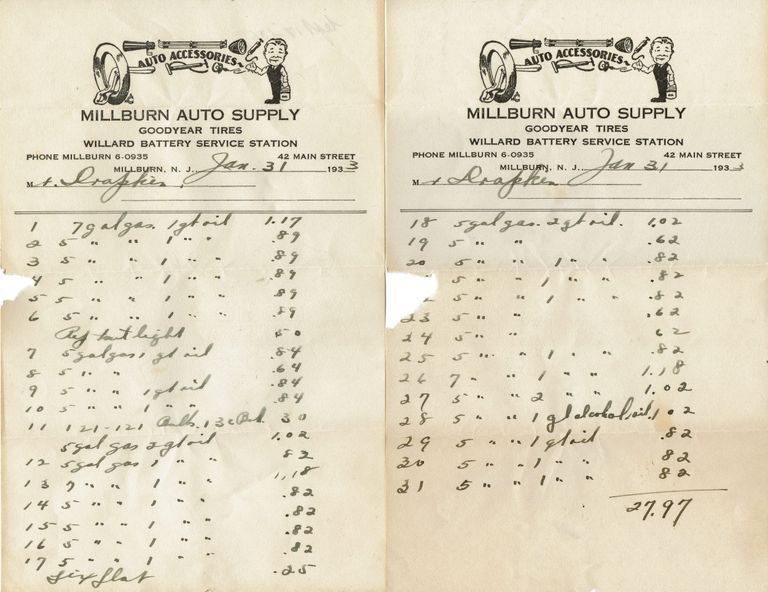 AUTO ACCESSORIES
MILLBURN AUTO SUPPLY
GOODYEAR TIRES
WILLARD BATTERY SERVICE STATION
PHONE MILLBURN 6-0935 42 MAIN STREET
MILLBURN, N. J. Jan. 31 1933
Mr. Drapkin
1 7 gal gas. 1 qt oil 1.17
2 5 " " 1 " " .89
3 5 " " 1 " " .89
4 5 " " 1 " " .89
5 5 " " 1 " " .89
6 5 " " 1 " " .89
light 50
7 5 gal gas 1 qt oil .84
8 5 " " .64
9 5 " " 1 qt oil .84
10 5 " " 1 " " .84
11 121-121 Bulbs. 30
5 gal gas 2 qt oil 1.02
12 5 gal gas 1 " " 82
13 7 " " 1 " " 1.18
14 5 " " 1 " " .82
15 5 " " 1 " " .82
16 5 " " 1 " " .82
17 5 " " 1 " " .82
Fix flat .25
AUTO ACCESSORIES
MILLBURN AUTO SUPPLY
GOODYEAR TIRES
WILLARD BATTERY SERVICE STATION
PHONE MILLBURN 6-0935 42 MAIN STREET
MILLBURN, N. J. Jan 31 1933
Mr Drapkin
18 5 gal gas. 2 qt oil. 1.02
19 5 " " .62
20 5 " " 1 " " .82
5 " " 1 " " .82
2 5 " " 1 " " .82
23 5 " " .62
24 5 " " 62
25 5 " " 1 " " .82
26 7 " " 1 " " 1.18
27 5 " " 2 " " 1.02
28 5 " " 1 qt alcohol, oil. 1.02
29 5 " " 1 qt oil .82
30 5 " " 1 " " 82
31 5 " " 1 " " 82
27.97